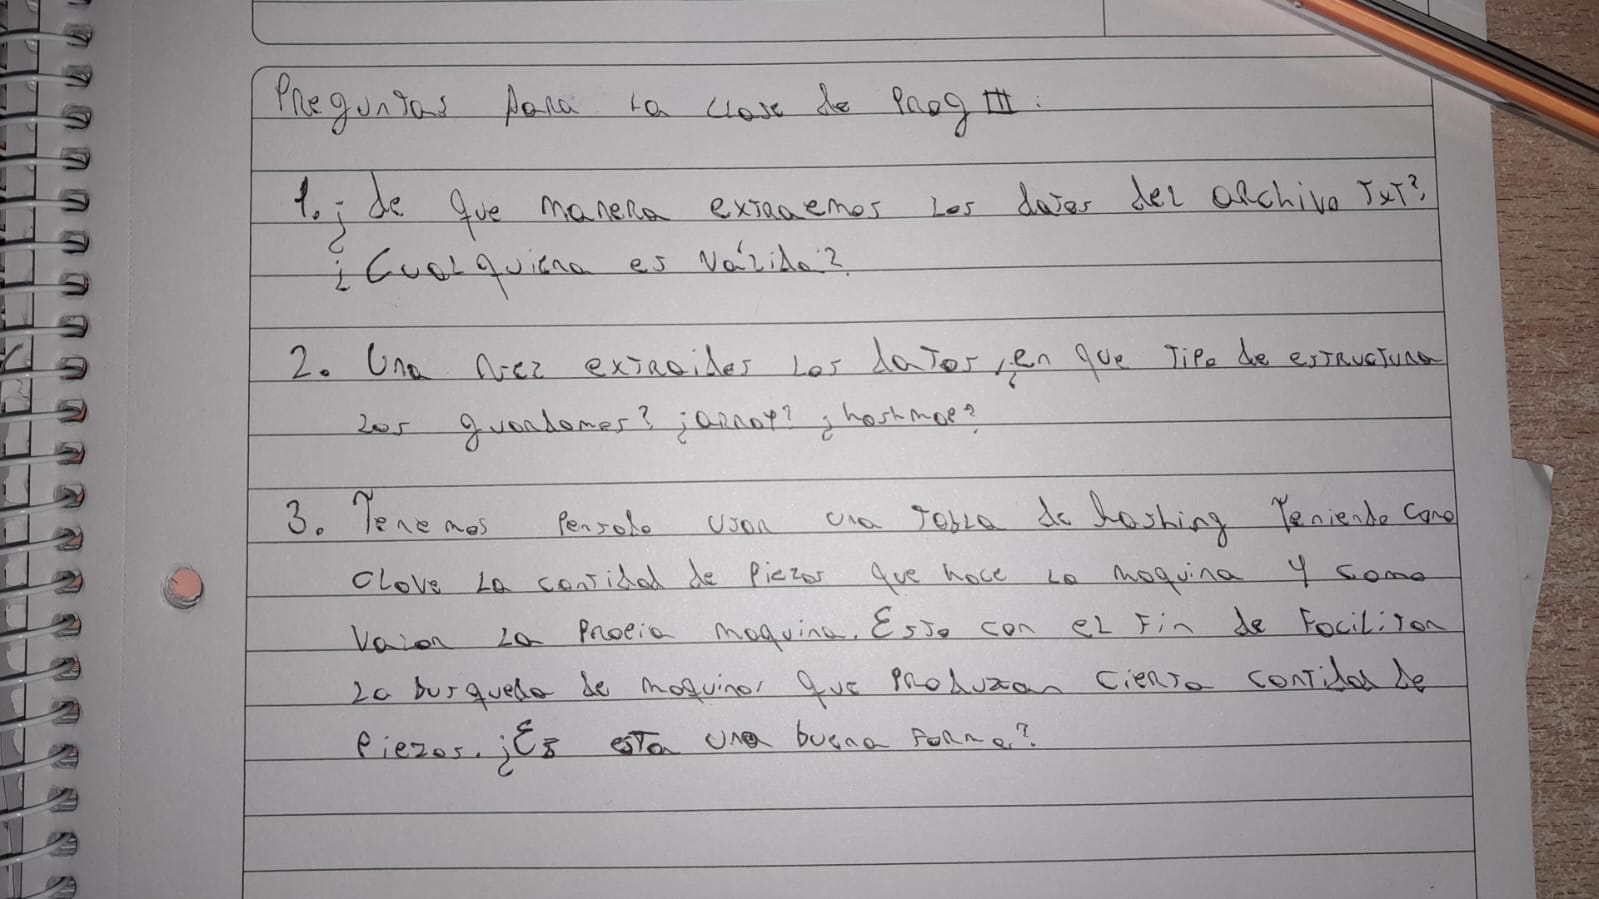 Preguntas para la clase de Prog III:
1. ¿de que manera extraemos los datos del archivo txt?
¿Cualquiera es válida?
2. Una vez extraidos los datos, ¿en que tipo de estructura
los guardamos? ¿array? ¿hashmap?
3. Tenemos pensado usar una tabla de hashing teniendo como
clave la cantidad de piezas que hace la maquina y como
valor la propia maquina. Esto con el fin de facilitar
la busqueda de maquinas que produzcan cierta cantidad de
piezas. ¿Es esta una buena forma?